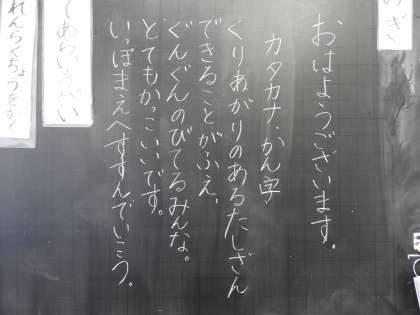 おはようございます。
カタカナ、かん字
くりあがりのあるたしざん
できることがふえ、
ぐんぐんのびてるみんな。
とてもかっこいいです。
いっぽまえへすすんでいこう。
れんらくちょうをか